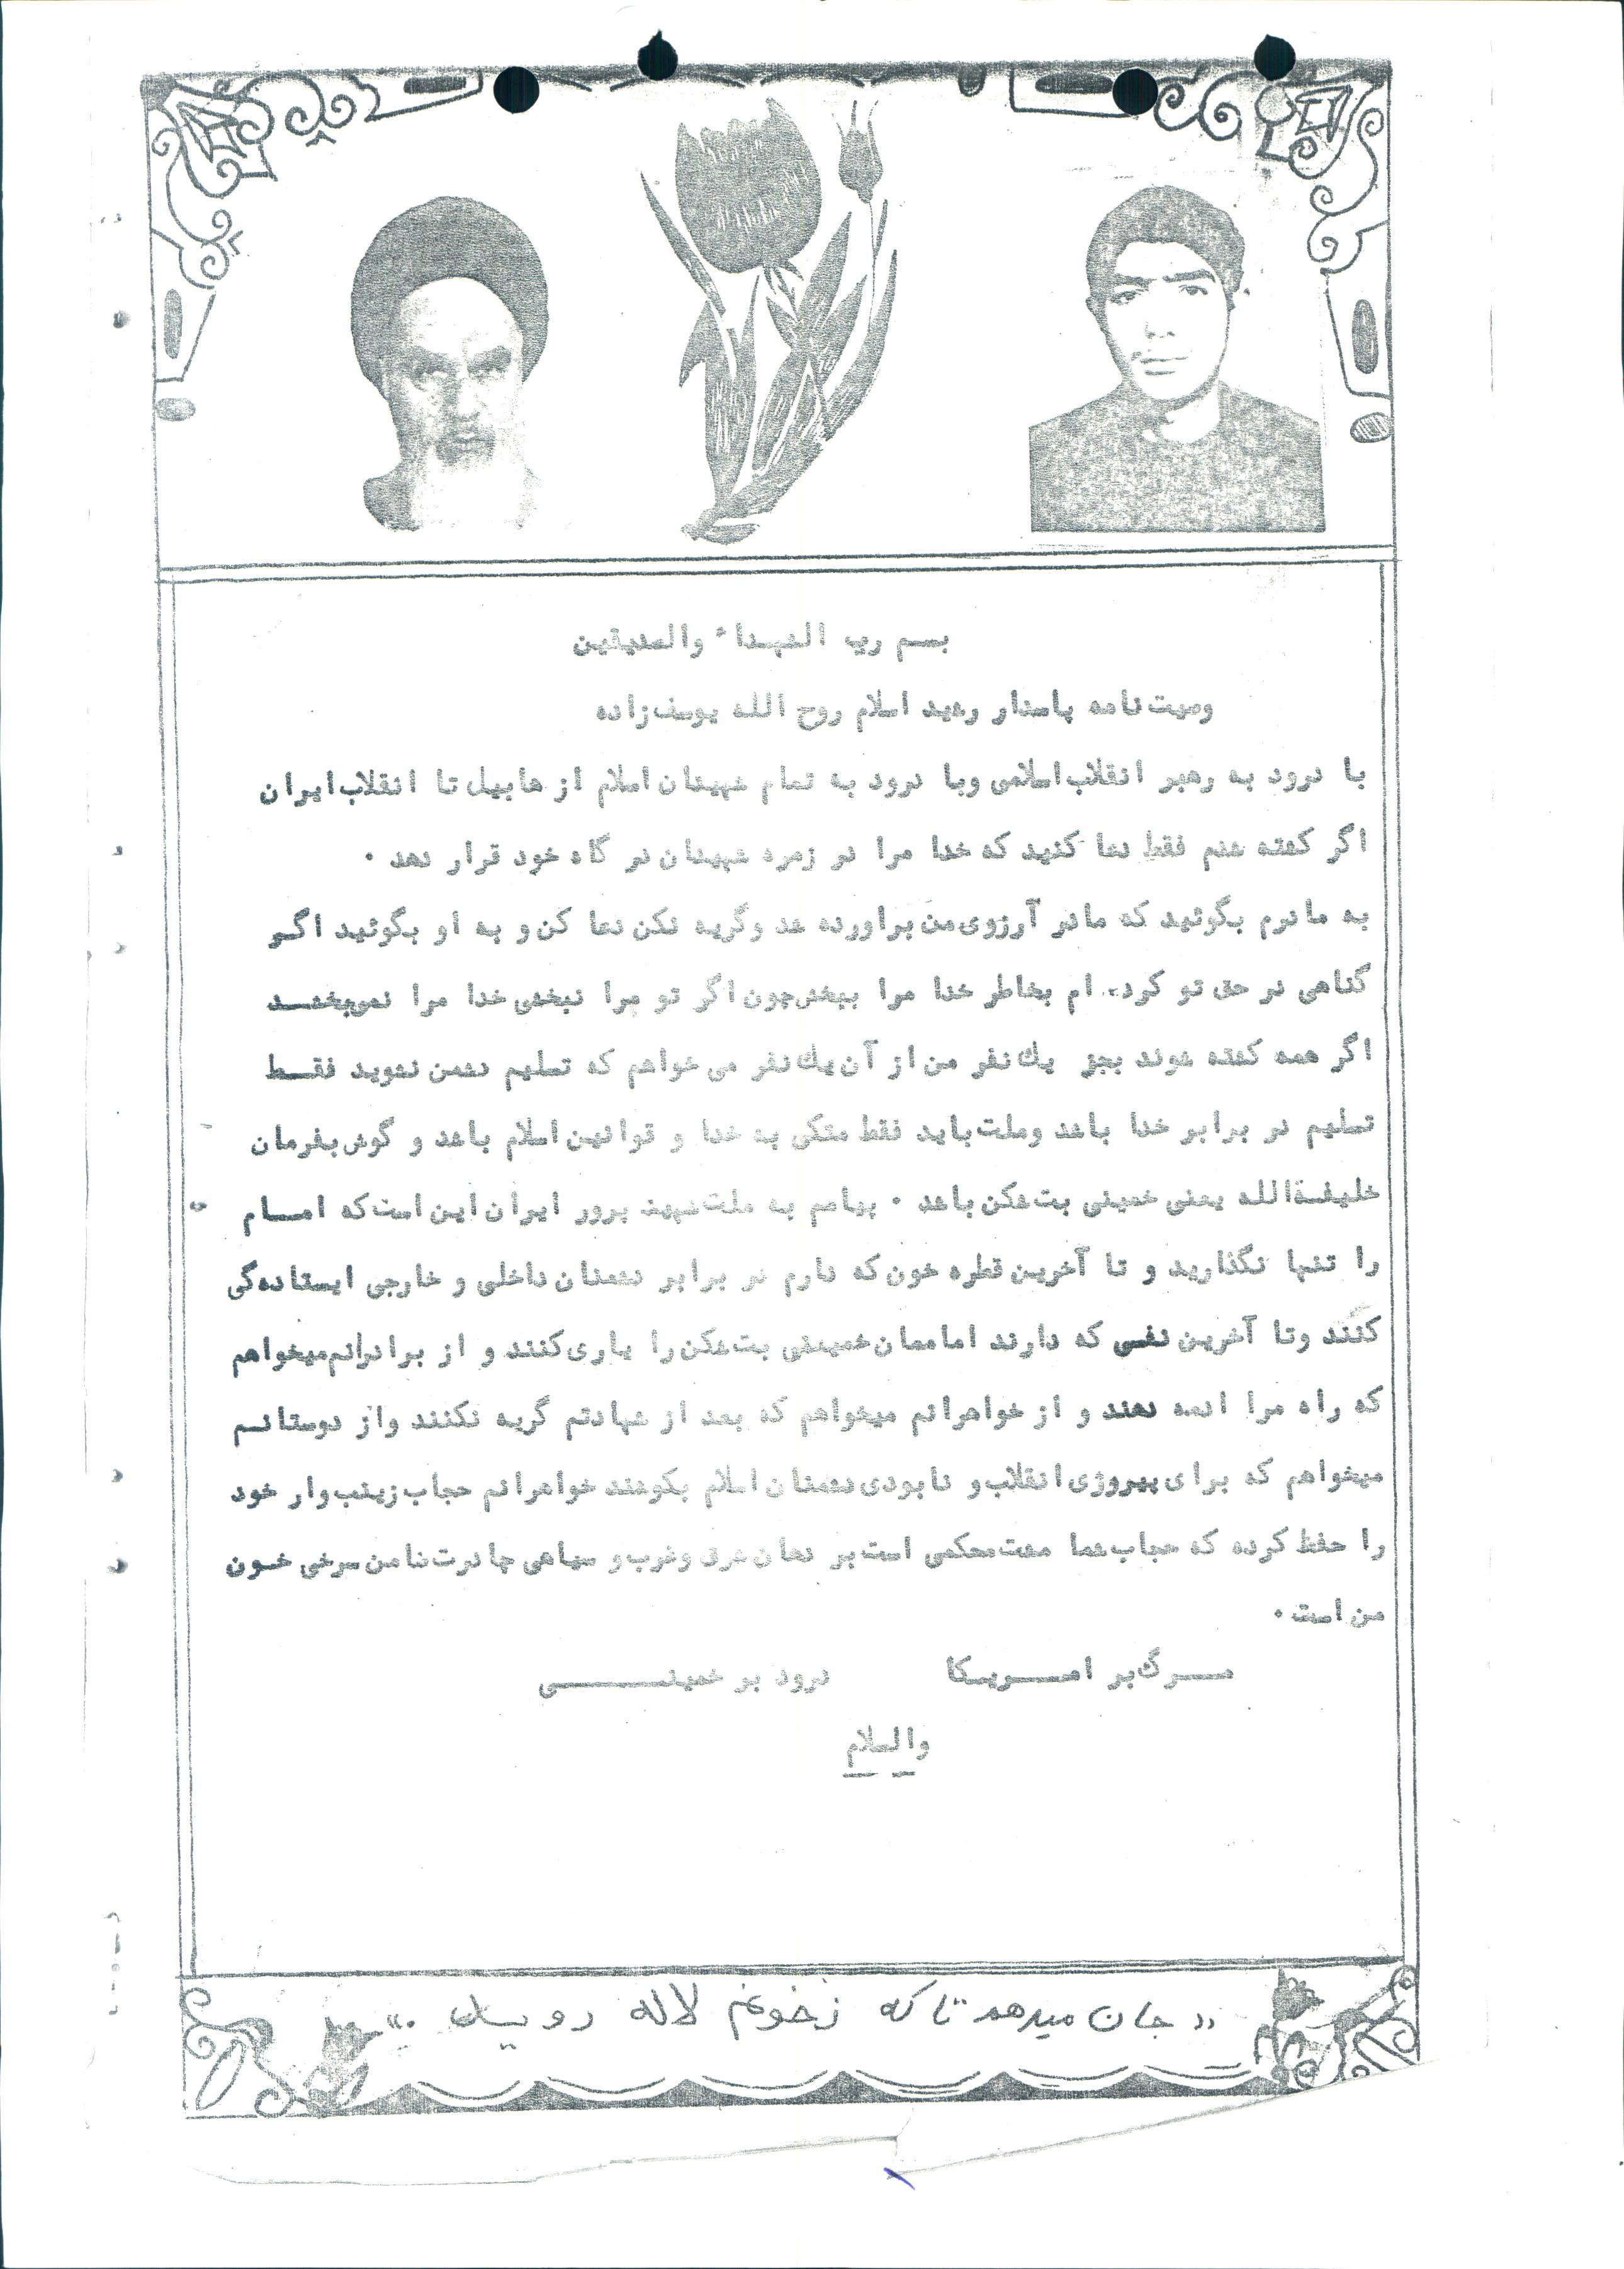 بسم رب الشهداء والصدیقین
وصیت نامه پاسدار رشید اسلام روح الله یوسف زاده
با درود به رهبر انقلاب اسلامی وبا درود به تمام شهیدان اسلام از هابیل تا انقلاب ایران
اگر کشته شدم فقط دعا کنید که خدا مرا در زمره شهیدان در گاه خود قرار دهد .
به مادرم بگوئید که مادر آرزوی من براورده شد وگریه نکن دعا کن و به او بگوئید اگر
گناهی در حق تو کرده ام بخاطر خدا مرا ببخش چون اگر تو مرا نبخشی خدا مرا نمیبخشد
اگر همه کشته شوند بجز یك نفر من از آن یك نفر می خواهم که تسلیم دشمن نشوید فقط
تسلیم در برابر خدا باشد وملت باید فقط متکی به خدا و قوانین اسلام باشد و گوش بفرمان
خلیفةالله یعنی خمینی بت شکن باشد . پیامم به ملت شهید پرور ایران این است که امام
را تنها نگذارید و تا آخرین قطره خون که دارم در برابر دشمنان داخلی و خارجی ایستاده گی
کنند وتا آخرین نفسی که دارند امامشان خمینی بت شکن را یاری کنند و از برادرانم میخواهم
که راه مرا ادمه دهند و از خواهرانم میخواهم که بعد از شهادتم گریه نکنند واز دوستانم
میخواهم که برای پیروزی انقلاب و نابودی دشمنان اسلام بکوشند خواهرانم حجاب زینب وار خود
را حفظ کرده که حجاب شما مشت محکمی است بر دهان شرق وغرب و سیاهی چادرت ضامن سرخی خون
من است .
مرگ بر امریکا درود بر خمینی
والسلام
«جان میدهم تا که زخونم لاله روید .»